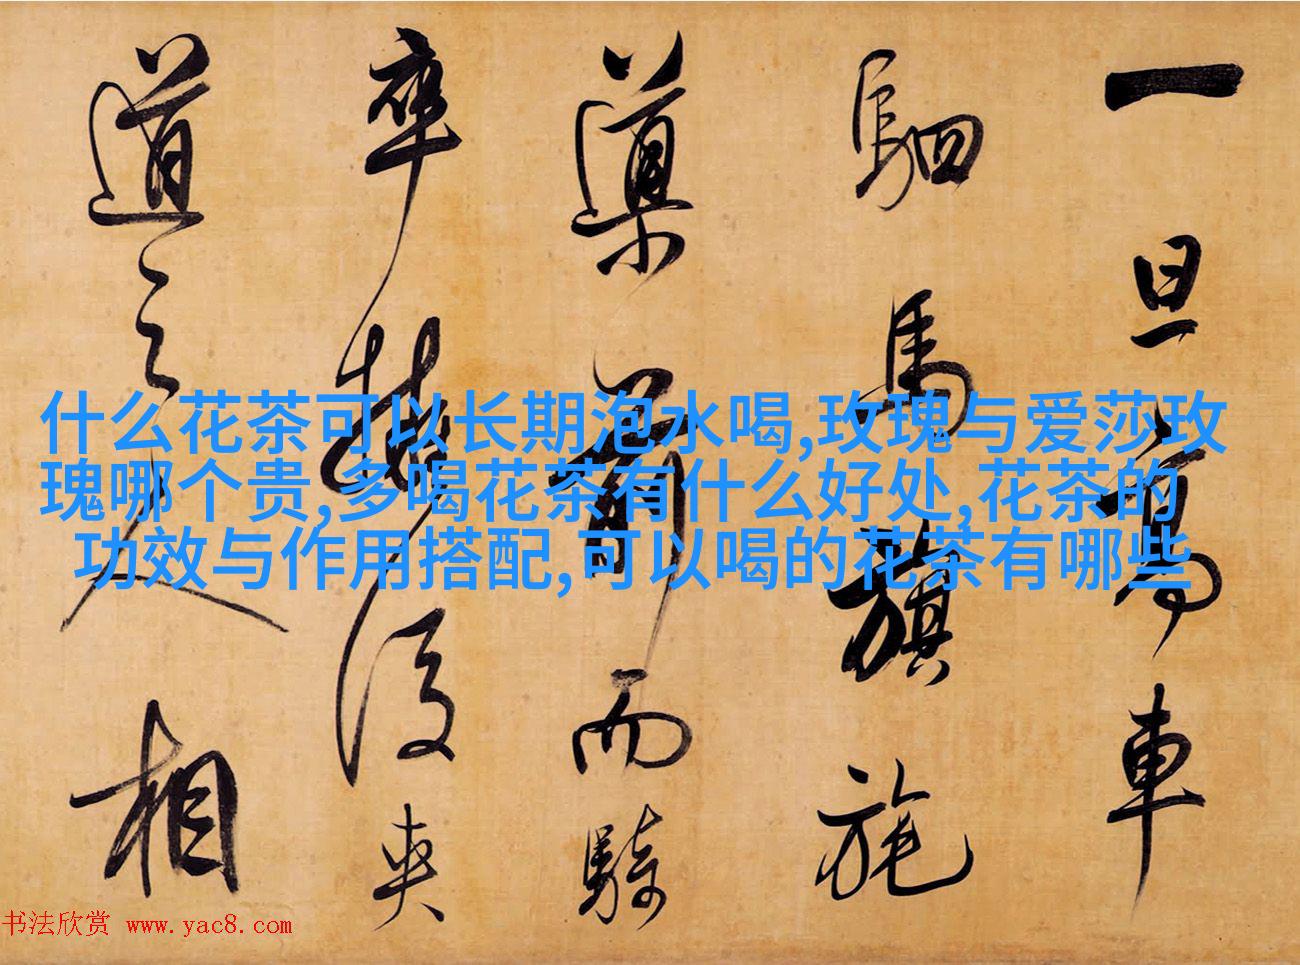 一旦高車
駟馬旗旄
導前而騎
卒擁後夾
道之人相
什么花茶可以长期泡水喝,玫瑰与爱莎玫
瑰哪个贵,多喝花茶有什么好处,花茶的
功效与作用搭配,可以喝的花茶有哪些
书法欣赏 www.yac8.com